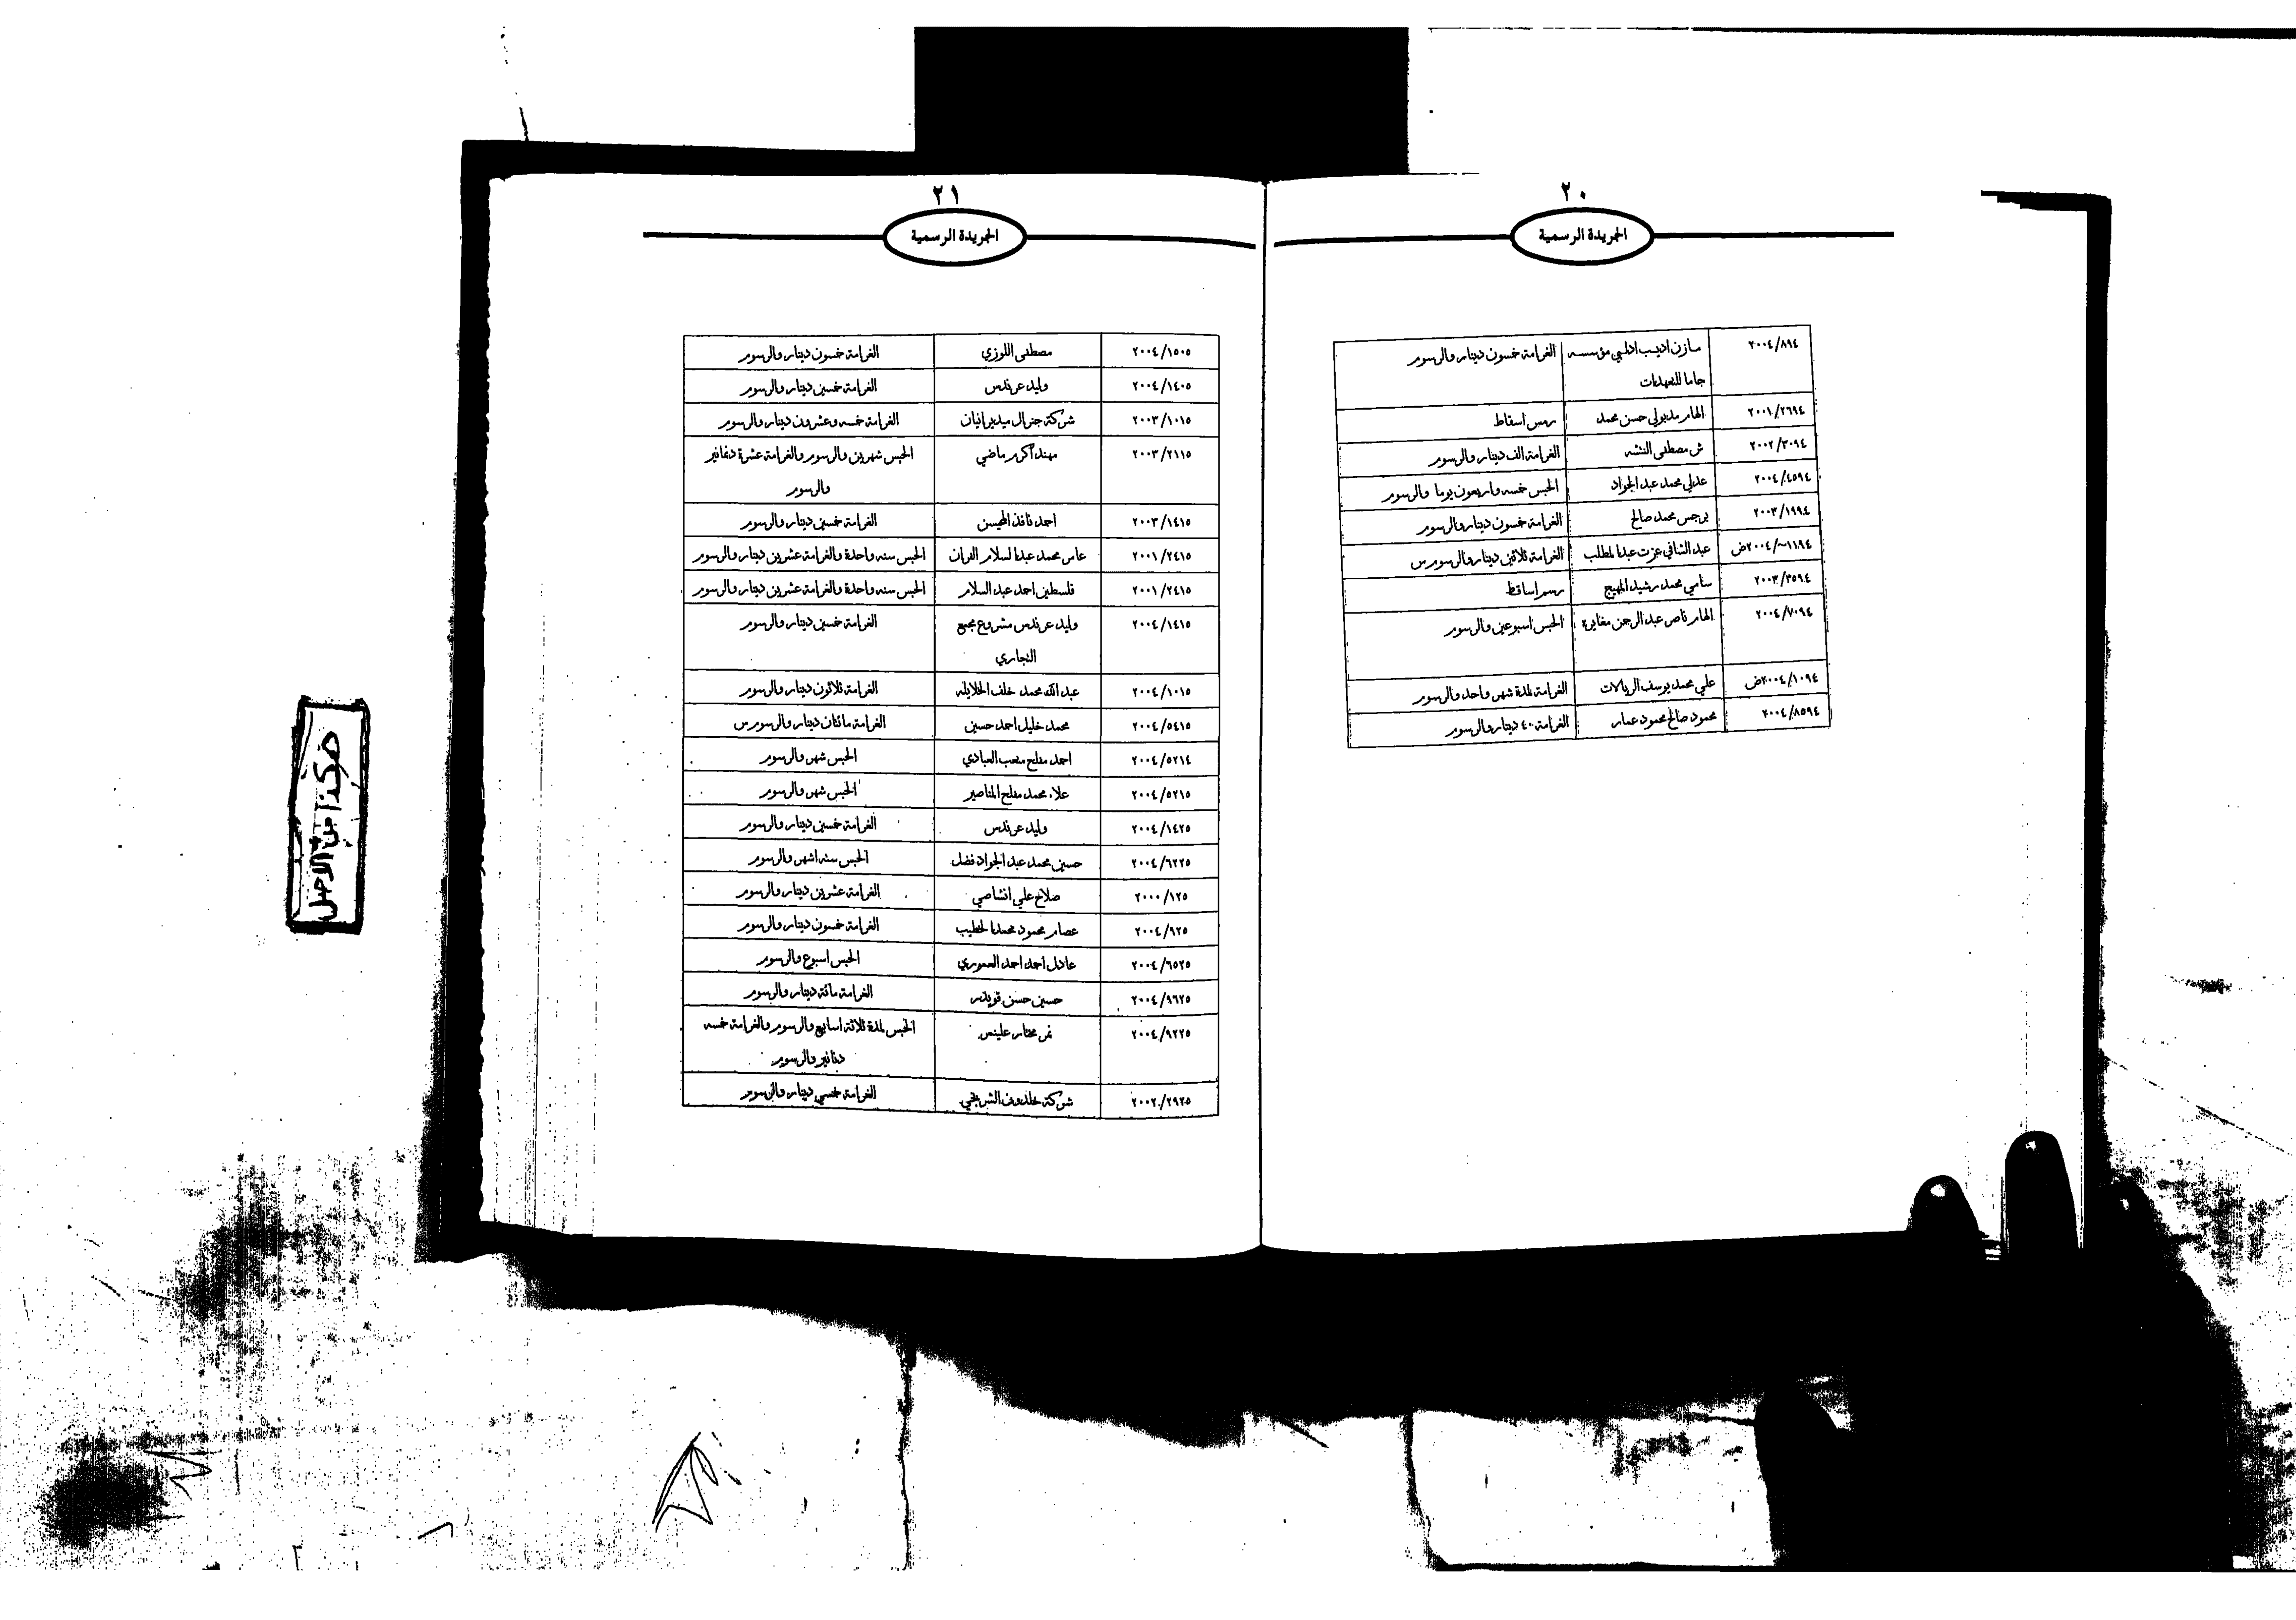 ٢٠
الجريدة الرسمية
٢٠٠٤/٨٩٤ مازن اديب ادلبي مؤسسه الغرامة خمسون دينار والرسوم
جاما للتعهدات
٢٠٠١/٢٦٩٤ الهام مدبولي حسن محمد رسم اسقاط
٢٠٠٢/٣٠٩٤ ش مصطفى النتشه الغرامة الف دينار والرسوم
٢٠٠٤/٤٥٩٤ عدلي محمد عبد الجواد الحبس خمسه واربعون يوما والرسوم
٢٠٠٣/١٩٩٤ برجس محمد صالح الغرامة خمسون دينار والرسوم
٢٠٠٤/~١١٩٤ض عبد الشافي عزت عبد المطلب الغرامة ثلاثين دينار والرسوم س
٢٠٠٣/٣٥٩٤ سامي محمد رشيد المهيج رسم اساقط
٢٠٠٤/٧٠٩٤ الهام ناصر عبد الرحمن مغايره الحبس اسبوعين والرسوم
٢٠٠٤/١٠٩٤ض علي محمد يوسف الريالات الغرامة لمدة شهر واحد والرسوم
٢٠٠٤/٨٥٩٤ محمود صالح محمود عمار الغرامة ٤٠ دينار والرسوم
٢١
الجريدة الرسمية
٢٠٠٤/١٥٠٥ مصطفى اللوزي الغرامة خمسون دينار والرسوم
٢٠٠٤/١٤٠٥ وليد عرندس الغرامة خمسين دينار والرسوم
٢٠٠٣/١٠١٥ شركة جنرال ميديرانيان الغرامة خمسه وعشرون دينار والرسوم
٢٠٠٣/٢١١٥ مهند أكرم ماضي الحبس شهرين والرسوم والغرامة عشرة دفانير
والرسوم
٢٠٠٣/١٤١٥ احمد نافذ المحيسن الغرامة خمسين دينار والرسوم
٢٠٠١/٢٤١٥ عامر محمد عبد السلام الفران الحبس سنه واحدة والغرامة عشرين دينار والرسوم
٢٠٠١/٢٤١٥ فلسطين احمد عبد السلام الحبس سنه واحدة والغرامة عشرين دينار والرسوم
٢٠٠٤/١٤١٥ وليد عرندس مشروع مجمع الغرامة خمسين دينار والرسوم
التجاري
٢٠٠٤/١٠١٥ عبد الله محمد خلف الخلايله الغرامة ثلاثون دينار والرسوم
٢٠٠٤/٥٤١٥ محمد خليل احمد حسين الغرامة مائتان دينار والرسوم س
٢٠٠٤/٥٢١٤ احمد مفلح متعب العبادي الحبس شهر والرسوم
٢٠٠٤/٥٢١٥ علاء محمد مفلح المناصير الحبس شهر والرسوم
٢٠٠٤/١٤٢٥ وليد عرندس الغرامة خمسين دينار والرسوم
٢٠٠٤/٦٢٢٥ حسين محمد عبد الجواد فضل الحبس سته اشهر والرسوم
٢٠٠٠/١٢٥ صلاح علي انشاصي الغرامة عشرين دينار والرسوم
٢٠٠٤/٩٢٥ عصام محمود محمد الخطيب الغرامة خمسون دينار والرسوم
٢٠٠٤/٦٥٢٥ عادل احمد احمد العموري الحبس اسبوع والرسوم
٢٠٠٤/٩٦٢٥ حسين حسن قويدر الغرامة مائة دينار والرسوم
٢٠٠٤/٩٢٢٥ نمر مختار علينس الحبس لمدة ثلاثة اسابيع والرسوم والغرامة خمسه
دنانير والرسوم
٢٠٠٢/٢٩٢٥ شركة خلدون الشريخي الغرامة خمسي دينار والرسوم
هكذا من الاصل